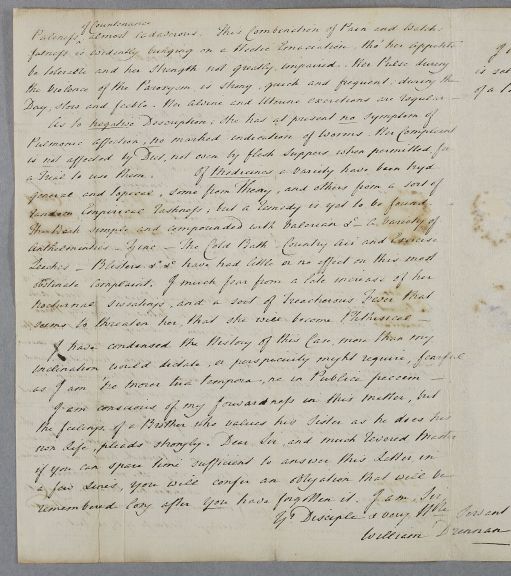 of Countenance
Paleness almost cadaverous. This Combination of Pain and Watch-
fulness is evidently bringing on a Hectic Emaciation, tho' her appetite
be tolerable and her Strength not greatly impaired. Her Pulse during
the violence of the Paroxysm is strong, quick and frequent, during the
Day, slow and feeble. Her alvine and Urinary excretions are regular —
As to negative Description, she has at present no Symptom of
Pulmonic affection, no marked indication of Worms. Her Complaint
is not affected by Diet, not even by flesh Suppers when permitted, for
a Trial to use them. Of Medicines a variety have been tryd
general and topical, some from Theory, and others from a sort of
random Empirical Rashness; but a remedy is yet to be found —
The Bark simple and compounded with Valerian &c — a Variety of
Anthelmintics — Zinc — The Cold Bath — Country Air and Exercise
Leeches — Blisters &c &c have had little or no effect on this most
obstinate complaint. I much fear from a late increase of her
nocturnal sweatings, and a sort of treacherous Fever that
seems to threaten her, that she will become Phthisical —
I have condensed the History of this Case, more than my
inclination would dictate, or perspicuity might require, fearful
as I am ne morer tua tempora, ne in Publica peccem —
I am conscious of my forwardness in this matter, but
the feelings of a Brother who values his Sister as he does his
own Life, pleads strongly. Dear Sir, and much revered Master
if you can spare time sufficient to answer this Letter, in
a few Lines, you will confer an obligation that will be
remembered long after you have forgotten it. I am, Sir
Yr Disciple & very Hble Servant
William Drennan
is
of a